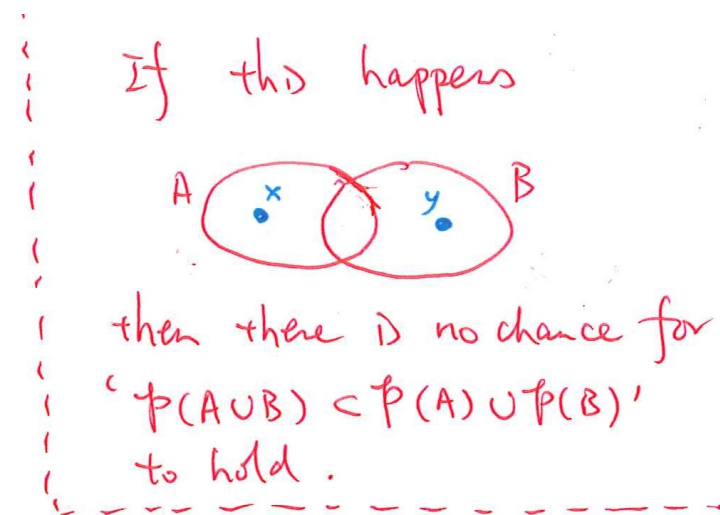 If this happens
A x y B
then there is no chance for
'𝒫(A∪B) ⊂ 𝒫(A) ∪ 𝒫(B)'
to hold.